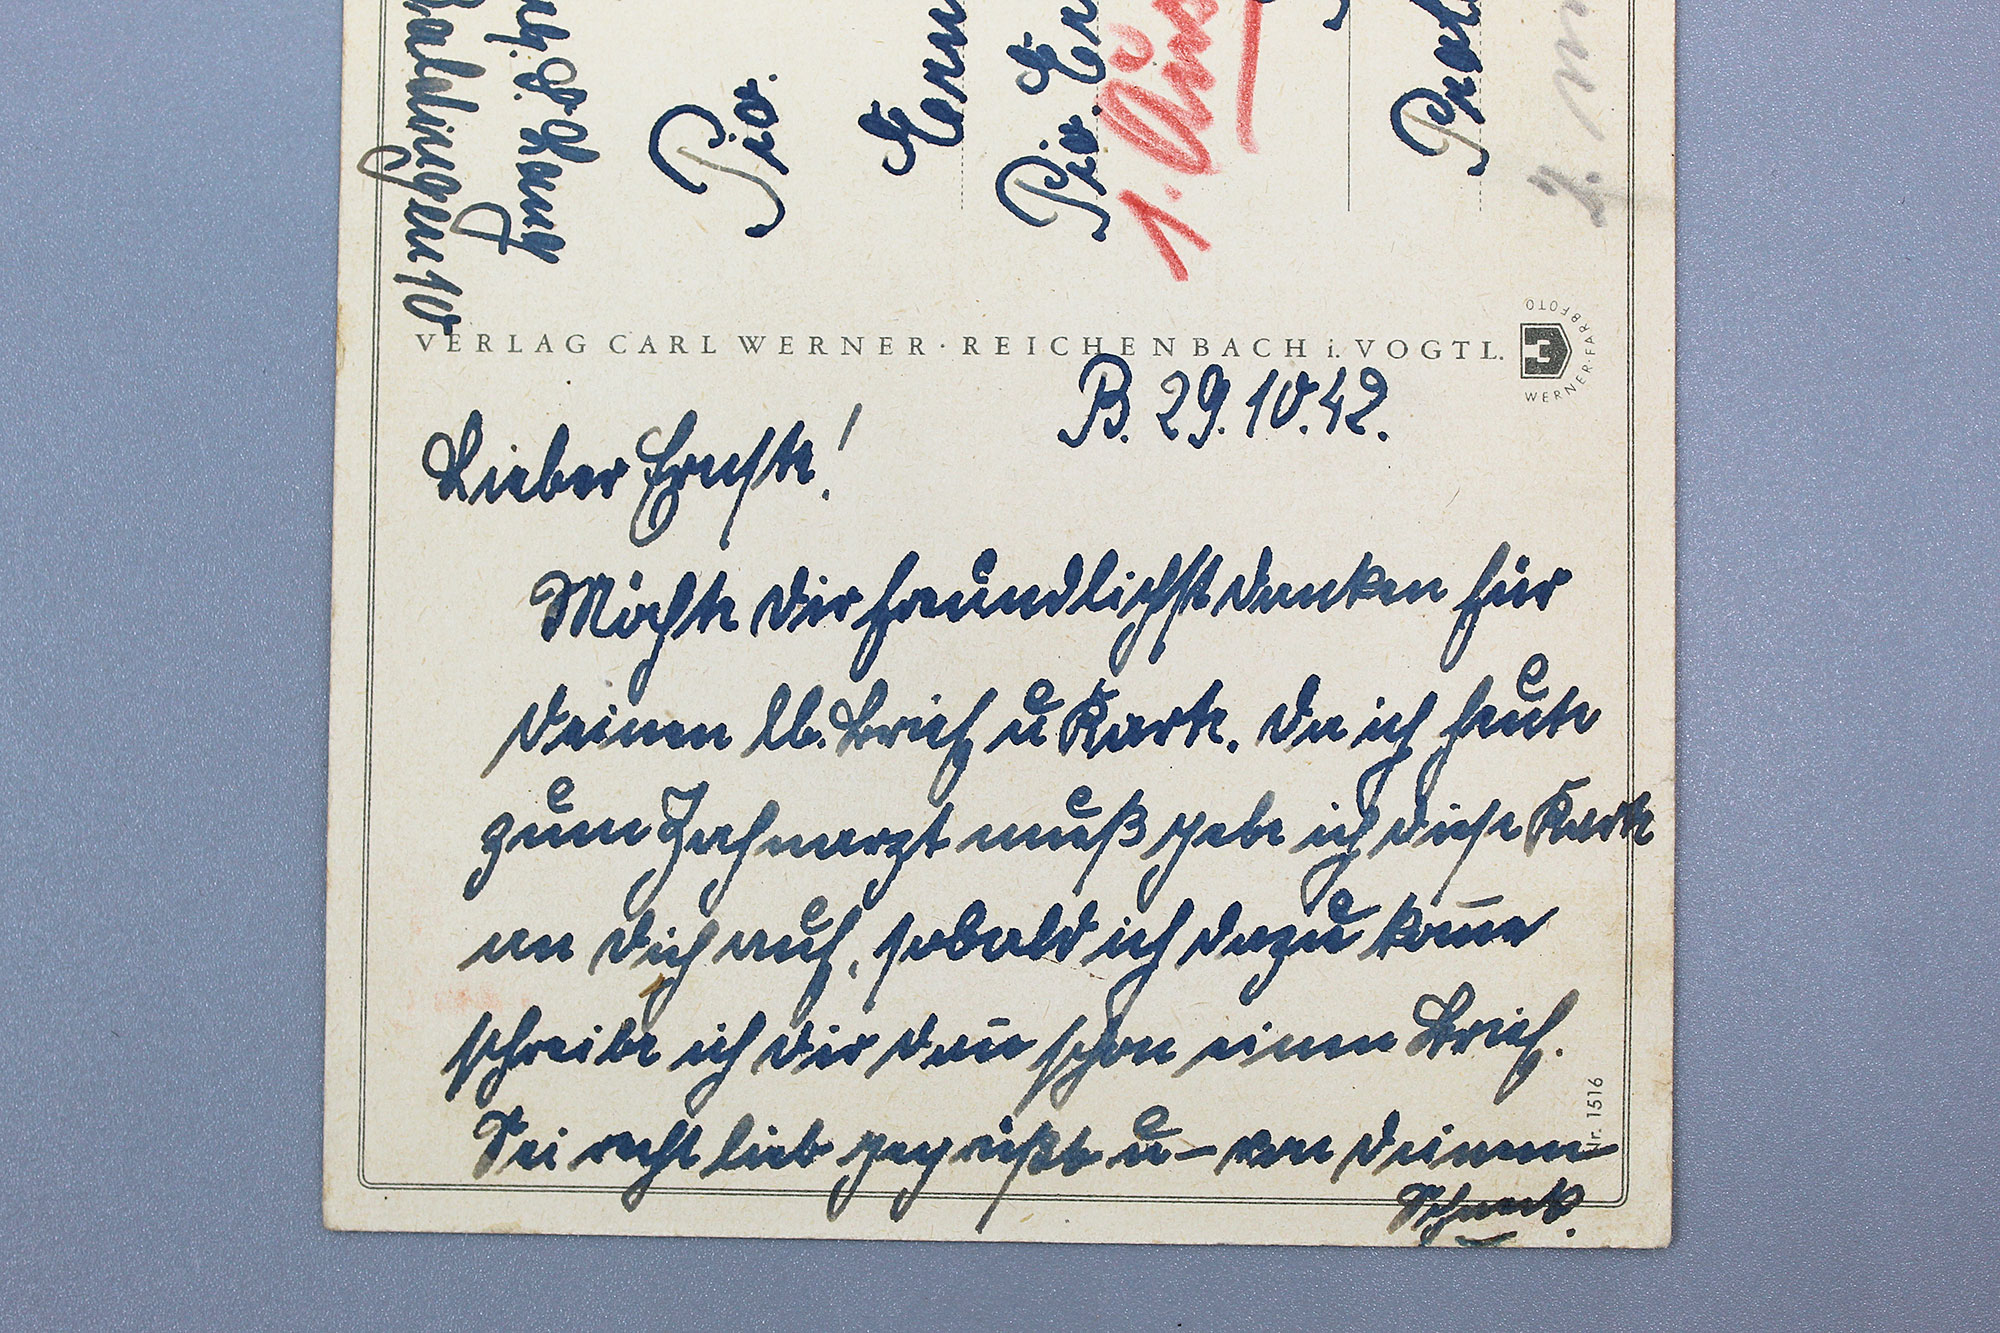 Baldingen 10
Pio.
Pio. Er
1.
VERLAG CARL WERNER · REICHENBACH i. VOGTL.
WERNER-FARBFOTO
B. 29.10.42.
Lieber Ernste!
Möchte dir freundlichst danken für
deinen lb. Brief u Karte. Da ich heute
zum Zahnarzt muß gebe ich diese Karte
an dich auf, sobald ich dazu kom̄e
schreibe ich dir dan̄ schon einen Brief.
Sei recht lieb gegrüßt u – von deinem
Nr. 1516